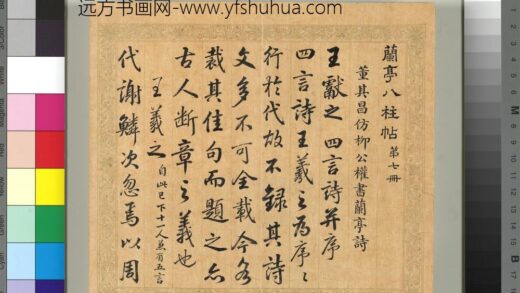 远方书画网-www.yfshuhua.com
蘭亭八柱帖 第七冊
董其昌仿柳公權書蘭亭詩
王獻之四言詩并序
四言詩王羲之為序〻
行於代故不錄其詩
文多不可全載今各
裁其佳句而題之亦
古人断章之義也
王羲之 自此已下十一人並有五言
代謝鱗次忽焉以周